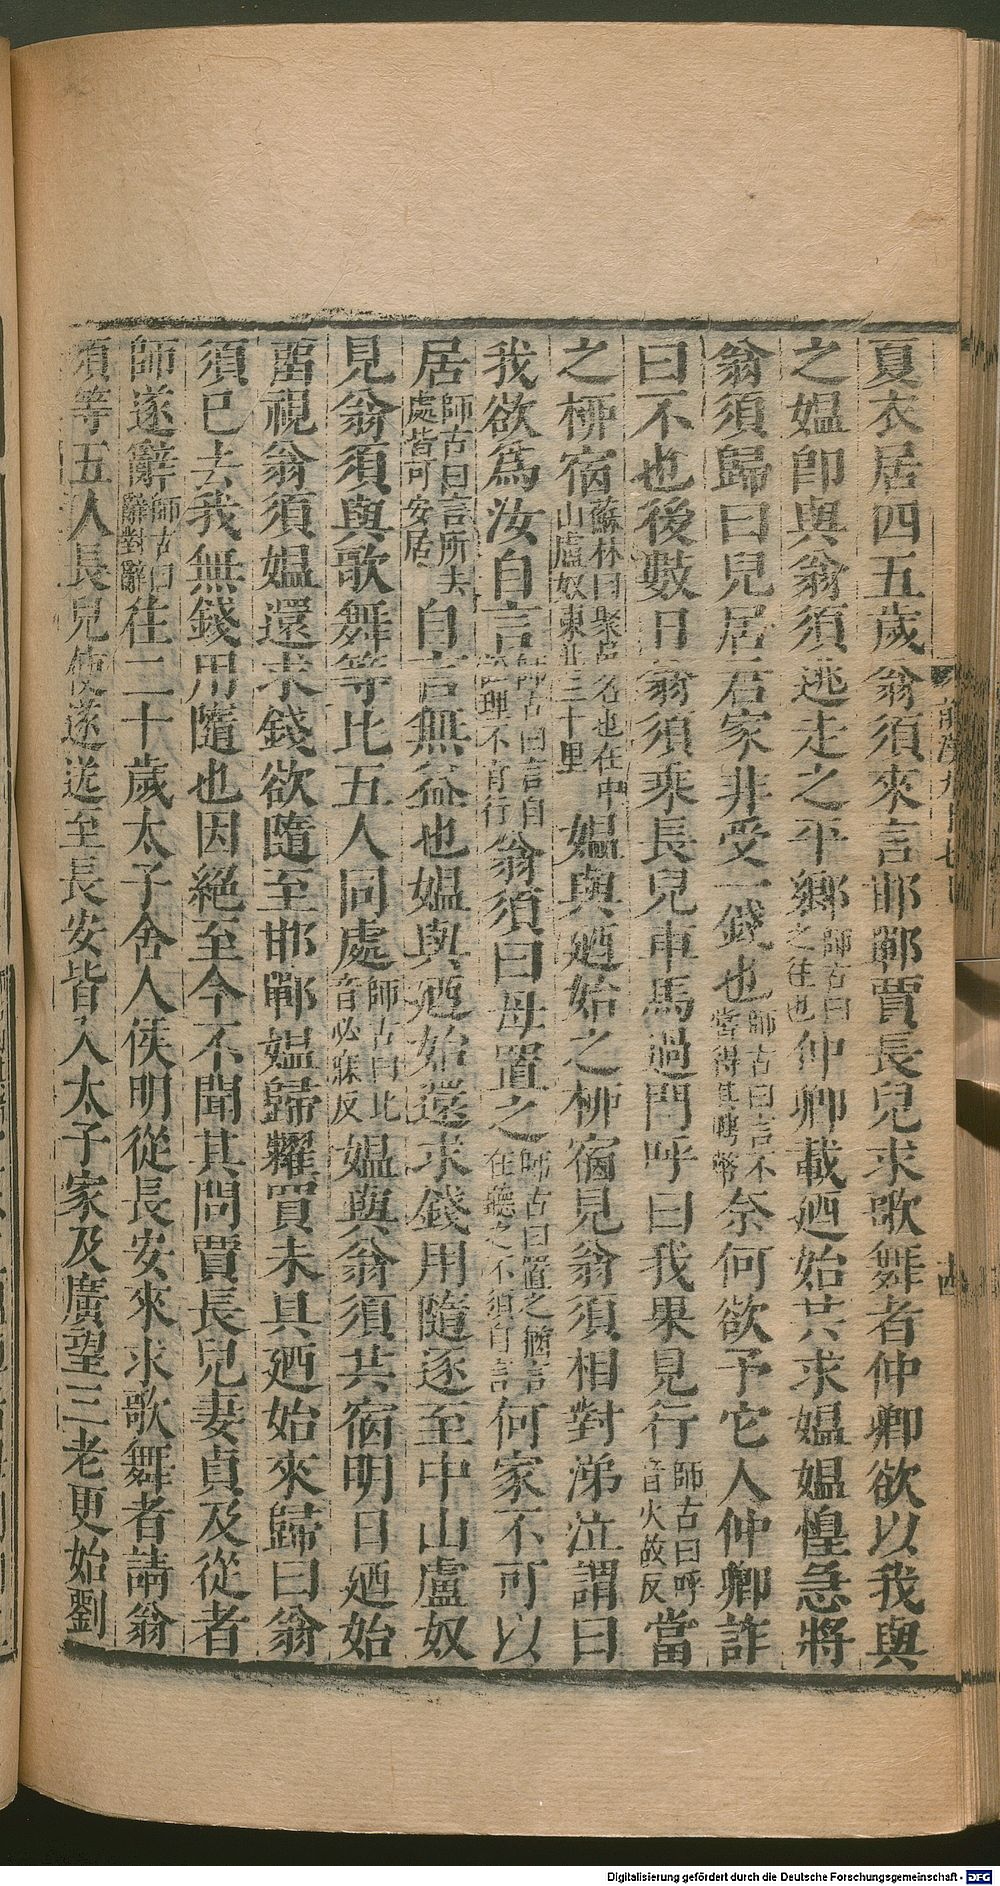 夏衣居四五歲翁須來言邯鄲賈長兒求歌舞者仲卿欲以我與
之媼卽與翁須逃走之平鄉師古曰之往也仲卿載廼始共求媼媼惶急將
翁須歸曰兒居君家非受一錢也師古曰言不當得其聘幣奈何欲予它人仲卿詐
曰不也後數日翁須乘長兒車馬過門呼曰我果見行師古曰呼音火故反當
之柳宿蘇林曰聚邑名也在中山盧奴東北三十里媼與廼始之柳宿見翁須相對涕泣謂曰
我欲爲汝自言師古曰言自理不肯行翁須曰母置之師古曰置之猶言在聽之不須自言何家不可以
居師古曰言所去處皆可安居自言無益也媼與廼始還求錢用隨逐至中山盧奴
見翁須與歌舞等比五人同處師古曰比音必寐反媼與翁須共宿明日廼始
留視翁須媼還求錢欲隨至邯鄲媼歸糶買未具廼始來歸曰翁
須已去我無錢用隨也因絕至今不聞其問賈長兒妻貞及從者
師遂辭師古曰辭對辭往二十歲太子舍人侯明從長安來求歌舞者請翁
須等五人長兒使遂送至長安皆入太子家及廣望三老更始劉
Digitalisierung gefördert durch die Deutsche Forschungsgemeinschaft - DFG